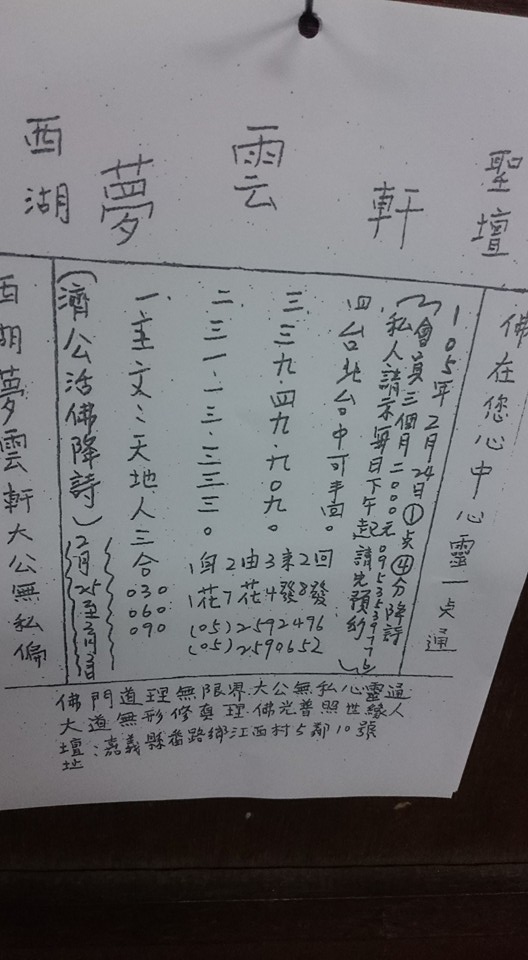 西湖夢雲軒聖壇
西湖夢雲軒大公無私偏
(濟公活佛降詩)2月25至3月3日
一.主文:天地人三合
030
060
090
二三一.一三.三三三。
三.三九.四九.九0九。
四.台北台中可手面。
1自2由3來2回
1花7花4發8發
(05)2592496
(05)2590652
私人請示每日下午起請先預約
(會員三個月二000元
105年2月24日①点④分降詩
佛在您心中心靈一点通
佛門道理無限界.大公無私心靈通
大道無形修真理.佛光普照世緣人
壇址:嘉義縣番路鄉江西村5鄰10號